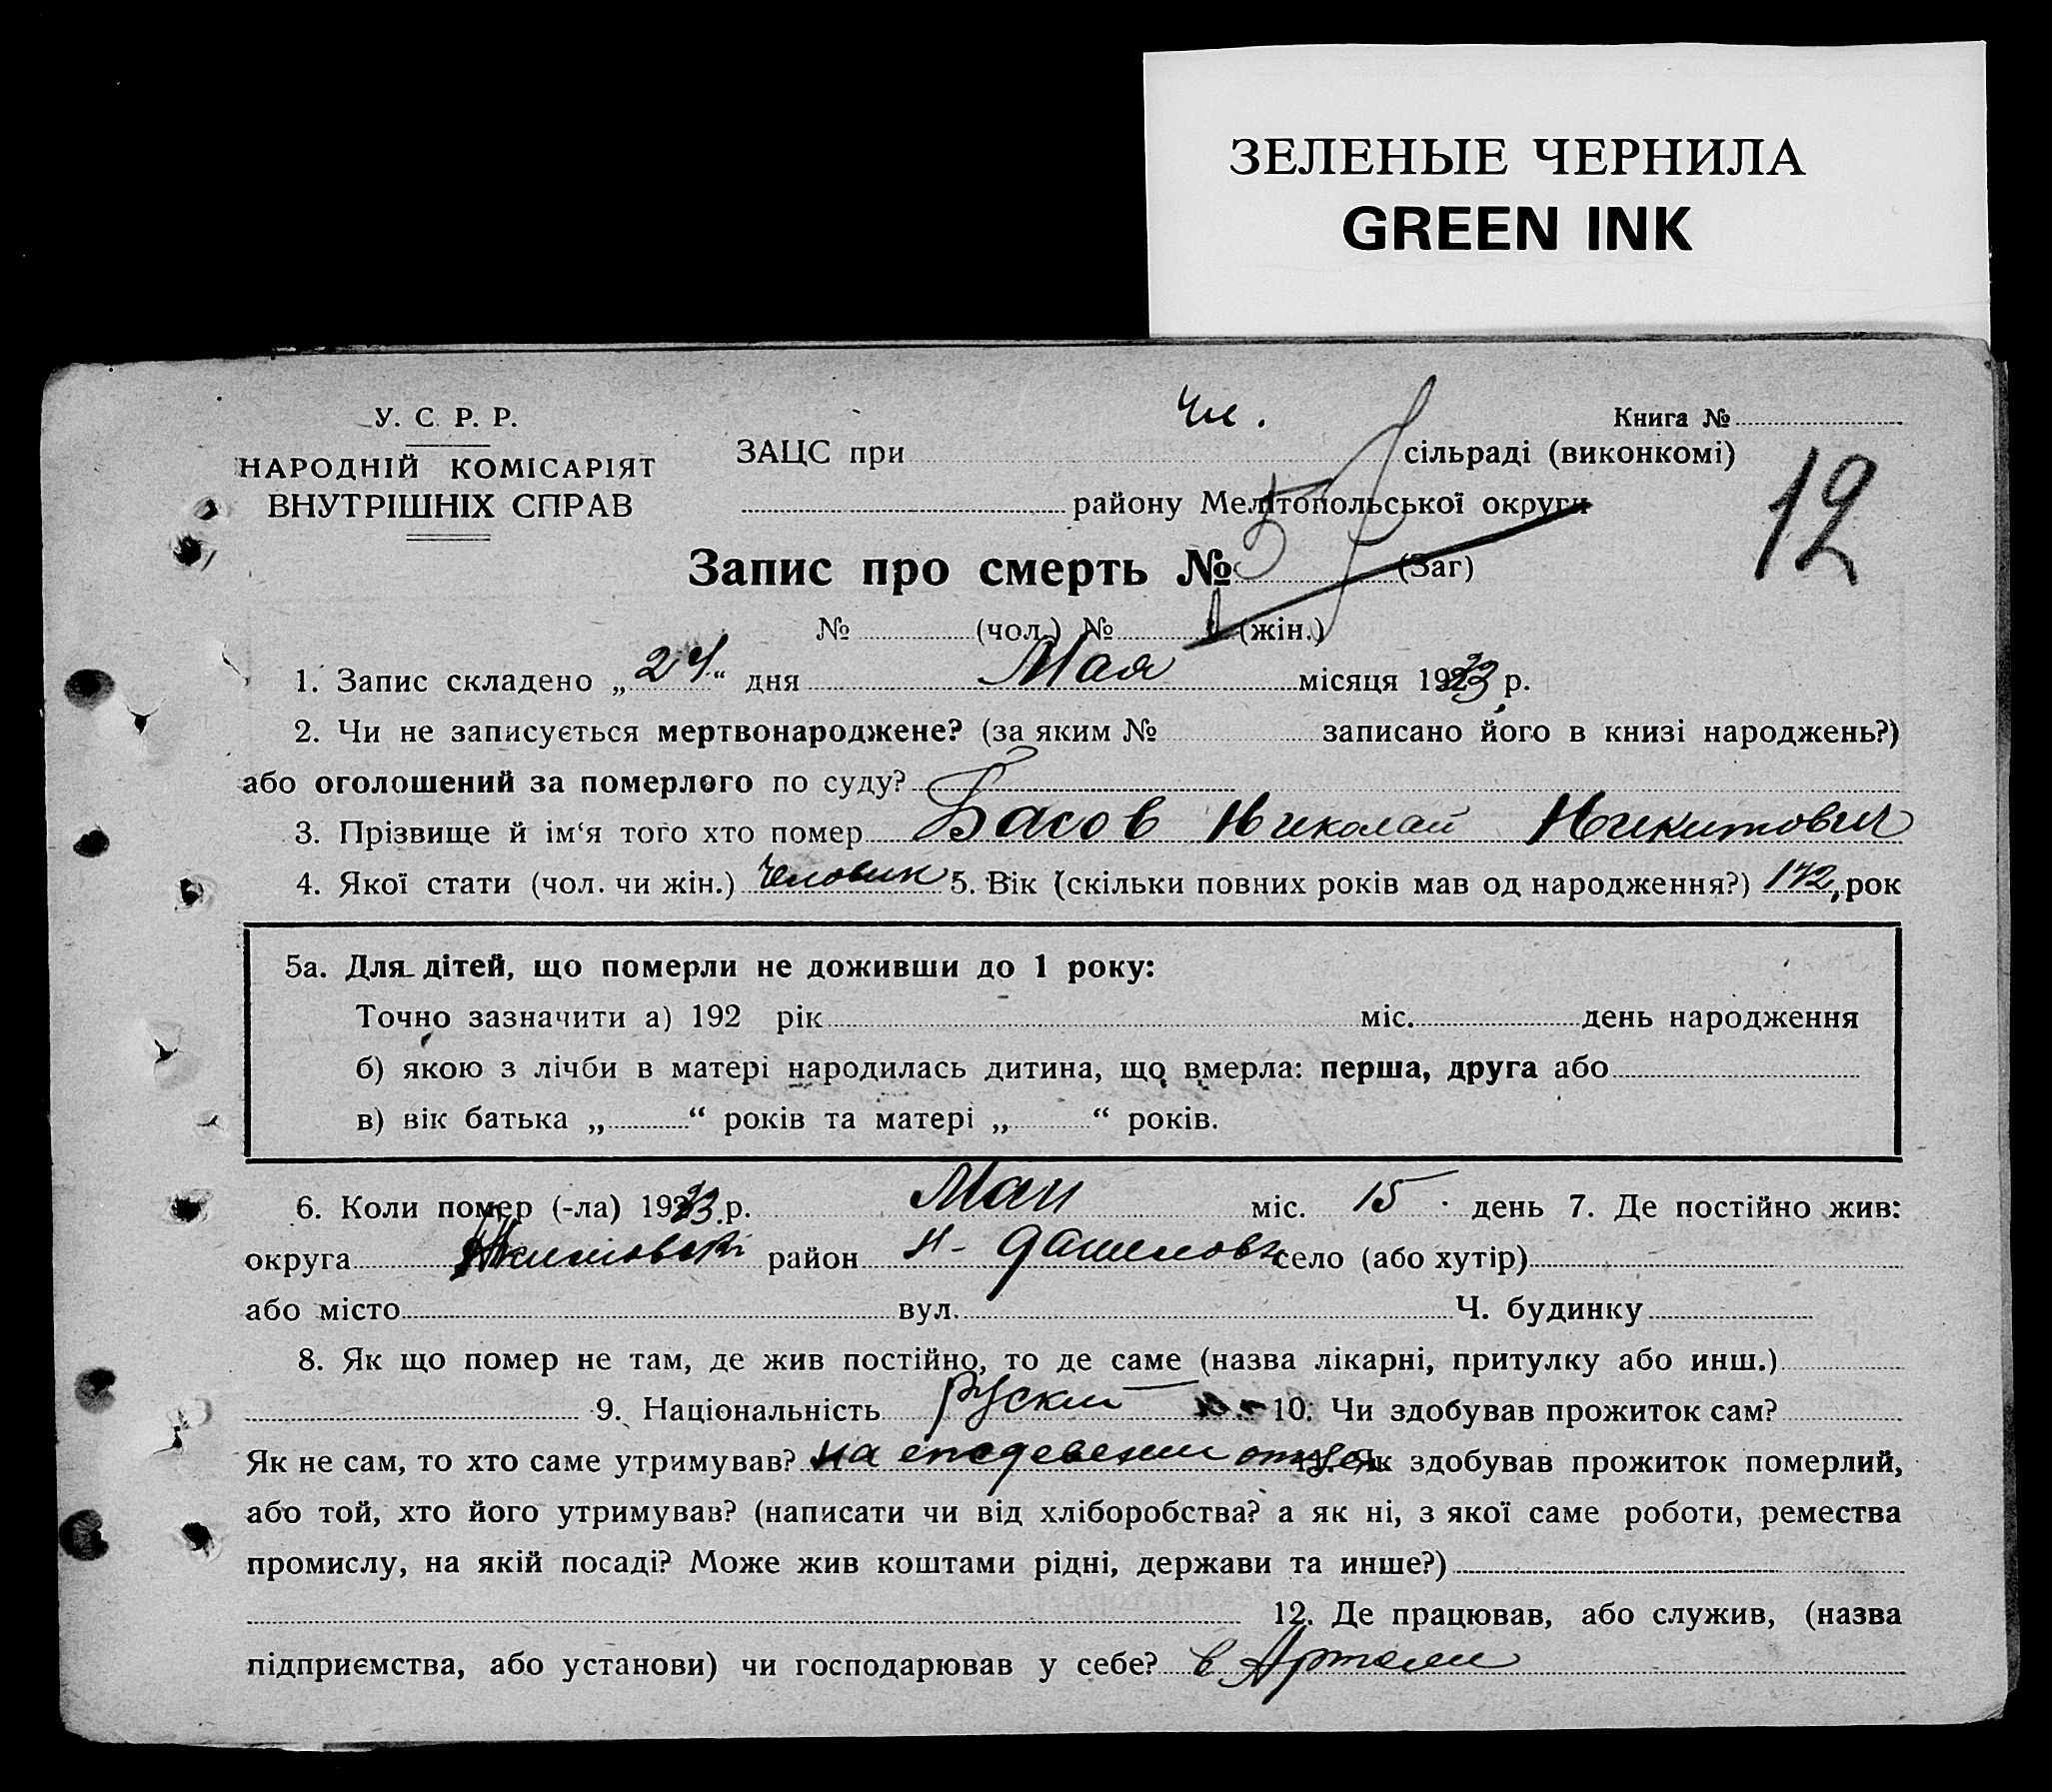 ЗЕЛЕНЫЕ ЧЕРНИЛА
GREEN INK
У. С. Р. Р.
НАРОДНІЙ КОМІСАРІЯТ
ВНУТРІШНІХ СПРАВ
Чл.
Книга №
ЗАЦС при сільраді (виконкомі)
12
району Мелітопольської округи
Запис про смерть № 57 (Заг)
№ (чол.) № (жін.)
1. Запис складено „24“ дня Мая місяця 1933 р.
2. Чи не записується мертвонароджене? (за яким № записано його в книзі народжень?)
або оголошений за померлого по суду?
3. Прізвище й ім‘я того хто помер Басов Николай Никитович
4. Якої стати (чол. чи жін.) Человик 5. Вік (скільки повних років мав од народження?) рок
5а. Для дітей, що померли не доживши до 1 року:
Точно зазначити а) 192 рік міс. день народження
б) якою з лічби в матері народилась дитина, що вмерла: перша, друга або
в) вік батька „ “ років та матері „ “ років.
6. Коли помер (-ла) 1933 р. Маи міс. 15 день 7. Де постійно жив:
округа район село (або хутір)
або місто вул. Ч. будинку
8. Як що помер не там, де жив постійно, то де саме (назва лікарні, притулку або инш.)
9. Національність руский 10. Чи здобував прожиток сам?
Як не сам, то хто саме утримував? на отца Як здобував прожиток померлий,
або той, хто його утримував? (написати чи від хліборобства? а як ні, з якої саме роботи, ремества
промислу, на якій посаді? Може жив коштами рідні, держави та инше?)
12. Де працював, або служив, (назва
підприємства, або установи) чи господарював у себе? в Артели